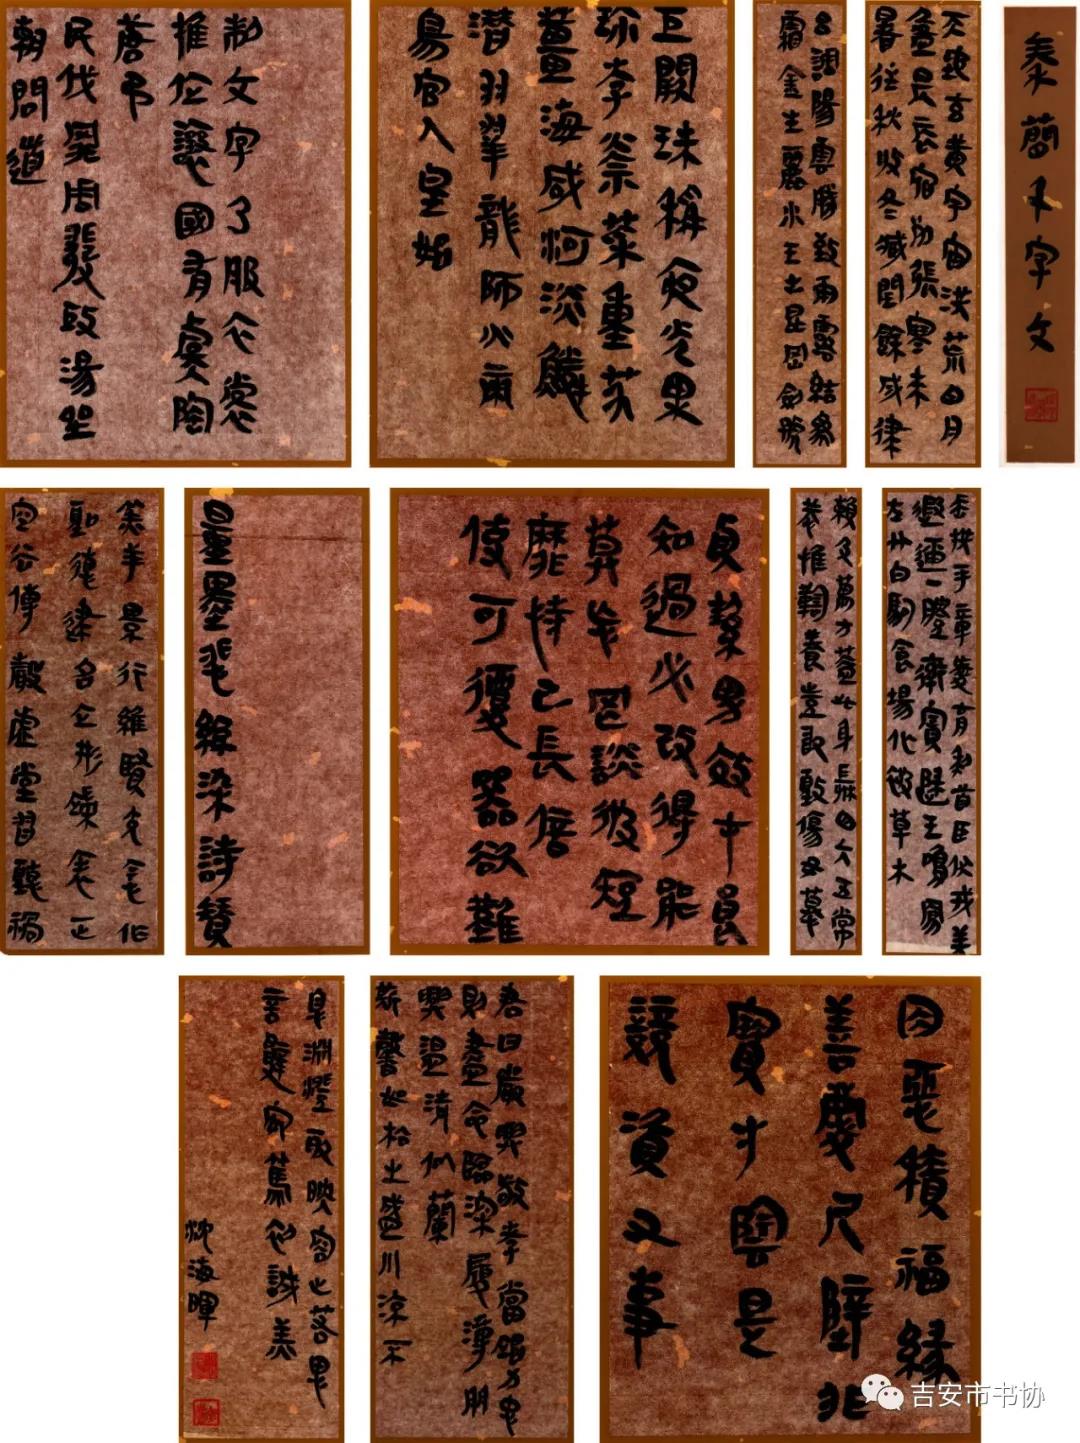 秦簡千字文
天地玄黄宇宙洪荒日月
盈昃辰宿列張寒来
暑往秋收冬藏閏餘成律
吕調陽雲騰致雨露結為
霜金生麗水玉出崑岡劍號
巨闕珠稱夜光果
珍李柰菜重芥
薑海咸河淡鱗
潛羽翔龍師火帝
鳥官人皇始
制文字乃服衣裳
推位讓國有虞陶
唐弔
民伐罪周發殷湯坐
朝問道
垂拱平章愛育黎首臣伏戎羌
遐邇一體率賓歸王鳴鳳
在竹白駒食場化被草木
賴及萬方蓋此身髮四大五常
恭惟鞠養豈敢毀傷女慕
貞絜男效才良
知過必改得能
莫忘罔談彼短
靡恃己長信
使可覆器欲難
量墨悲絲染詩贊
羔羊景行維賢克念作
聖德建名立形端表正
空谷傳聲虛堂習聽禍
因惡積福緣
善慶尺璧非
寶寸陰是
競資父事
君曰嚴與敬孝當竭力忠
則盡命臨深履薄夙
興温凊似蘭
斯馨如松之盛川流不
息淵澄取映容止若思
言辭安篤初誠美
沈海暉
吉安市书协